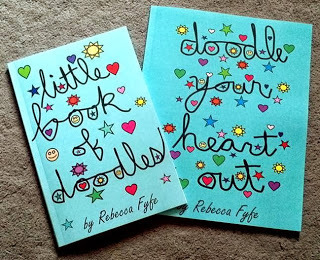 little
book
of
doodles
by Rebecca Fyfe
doodle
your
heart
out
by Rebecca Fyfe